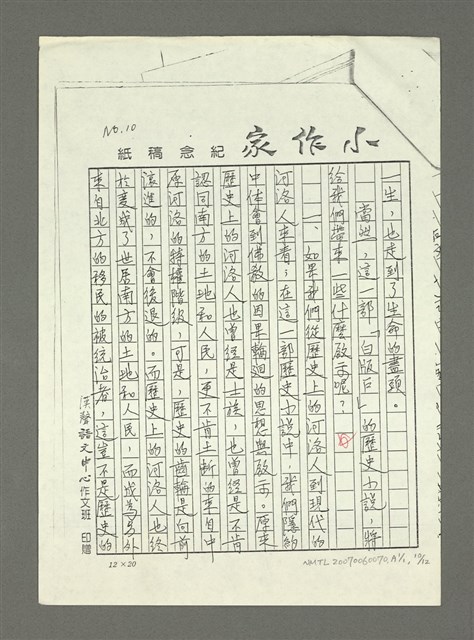 No.10
小作家 紀念稿紙
一生，也走到了生命的盡頭。
當然，這一部「白版巨」的歷史小說，將
給我們帶來一些什麼啟示呢？
一、如果我們從歷史上的河洛人到現代的
河洛人來看；在這一部歷史小說中，我們隱約
中体會到佛教的因果輪迴的思想與啟示。原來
歷史上的河洛人也曾經是士族，也曾經是不肯
認同南方的土地和人民，更不肯土斷的來自中
原河洛的特權階級，可是，歷史的齒輪是向前
滾進的，不會後退的。而歷史上的河洛人也終
於變成了世居南方的土地和人民，而成為另外
來自北方的移民的被統治者，這豈不是歷史的
漢聲語文中心作文班 印贈
12×20
NMTL20070060070
10/12